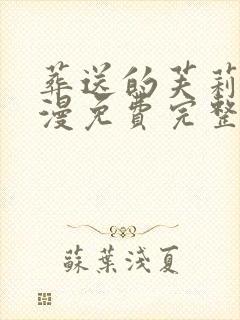 葬送的芙莉
漫免費完整
蘇葉淺夏